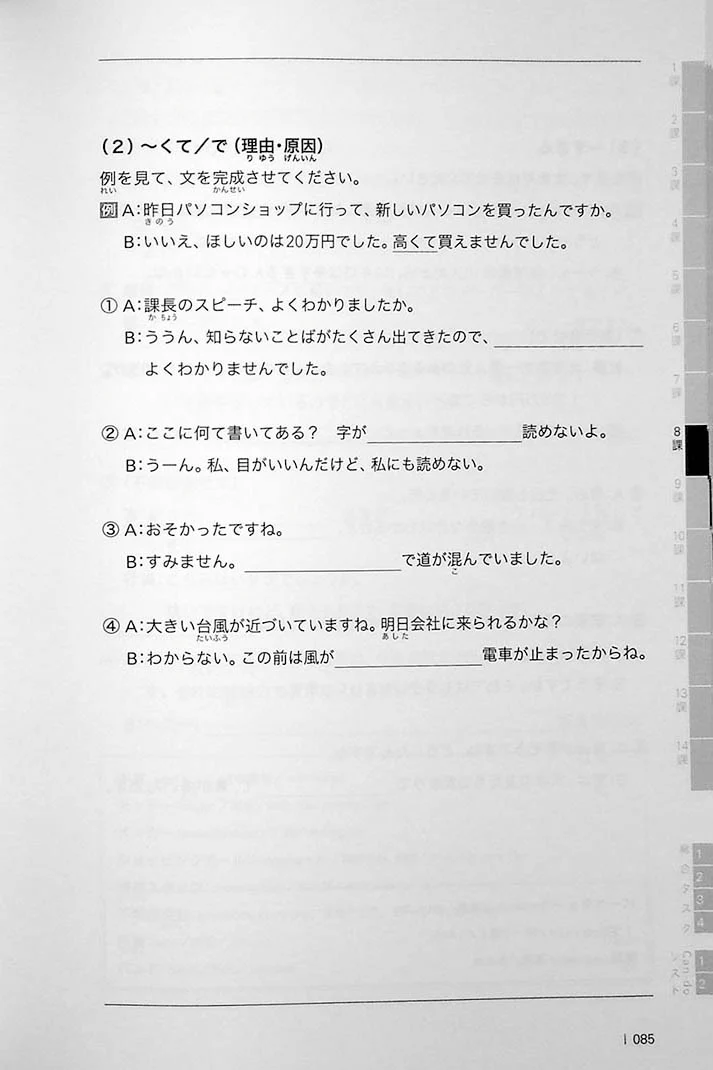 1課
2課
3課
4課
5課
6課
7課
8課
9課
10課
11課
12課
13課
14課
総合タスク
1
2
3
4
Can-doリスト
1
2
（2）～くて／で（理由・原因）
りゆう げんいん
例を見て、文を完成させてください。
れい かんせい
例 A：昨日パソコンショップに行って、新しいパソコンを買ったんですか。
きのう
B：いいえ、ほしいのは20万円でした。高くて買えませんでした。
① A：課長のスピーチ、よくわかりましたか。
かちょう
B：ううん、知らないことばがたくさん出てきたので、
よくわかりませんでした。
② A：ここに何て書いてある？ 字が 読めないよ。
B：うーん。私、目がいいんだけど、私にも読めない。
③ A：おそかったですね。
B：すみません。 で道が混んでいました。
こ
④ A：大きい台風が近づいていますね。明日会社に来られるかな？
たいふう あした
B：わからない。この前は風が 電車が止まったからね。
085